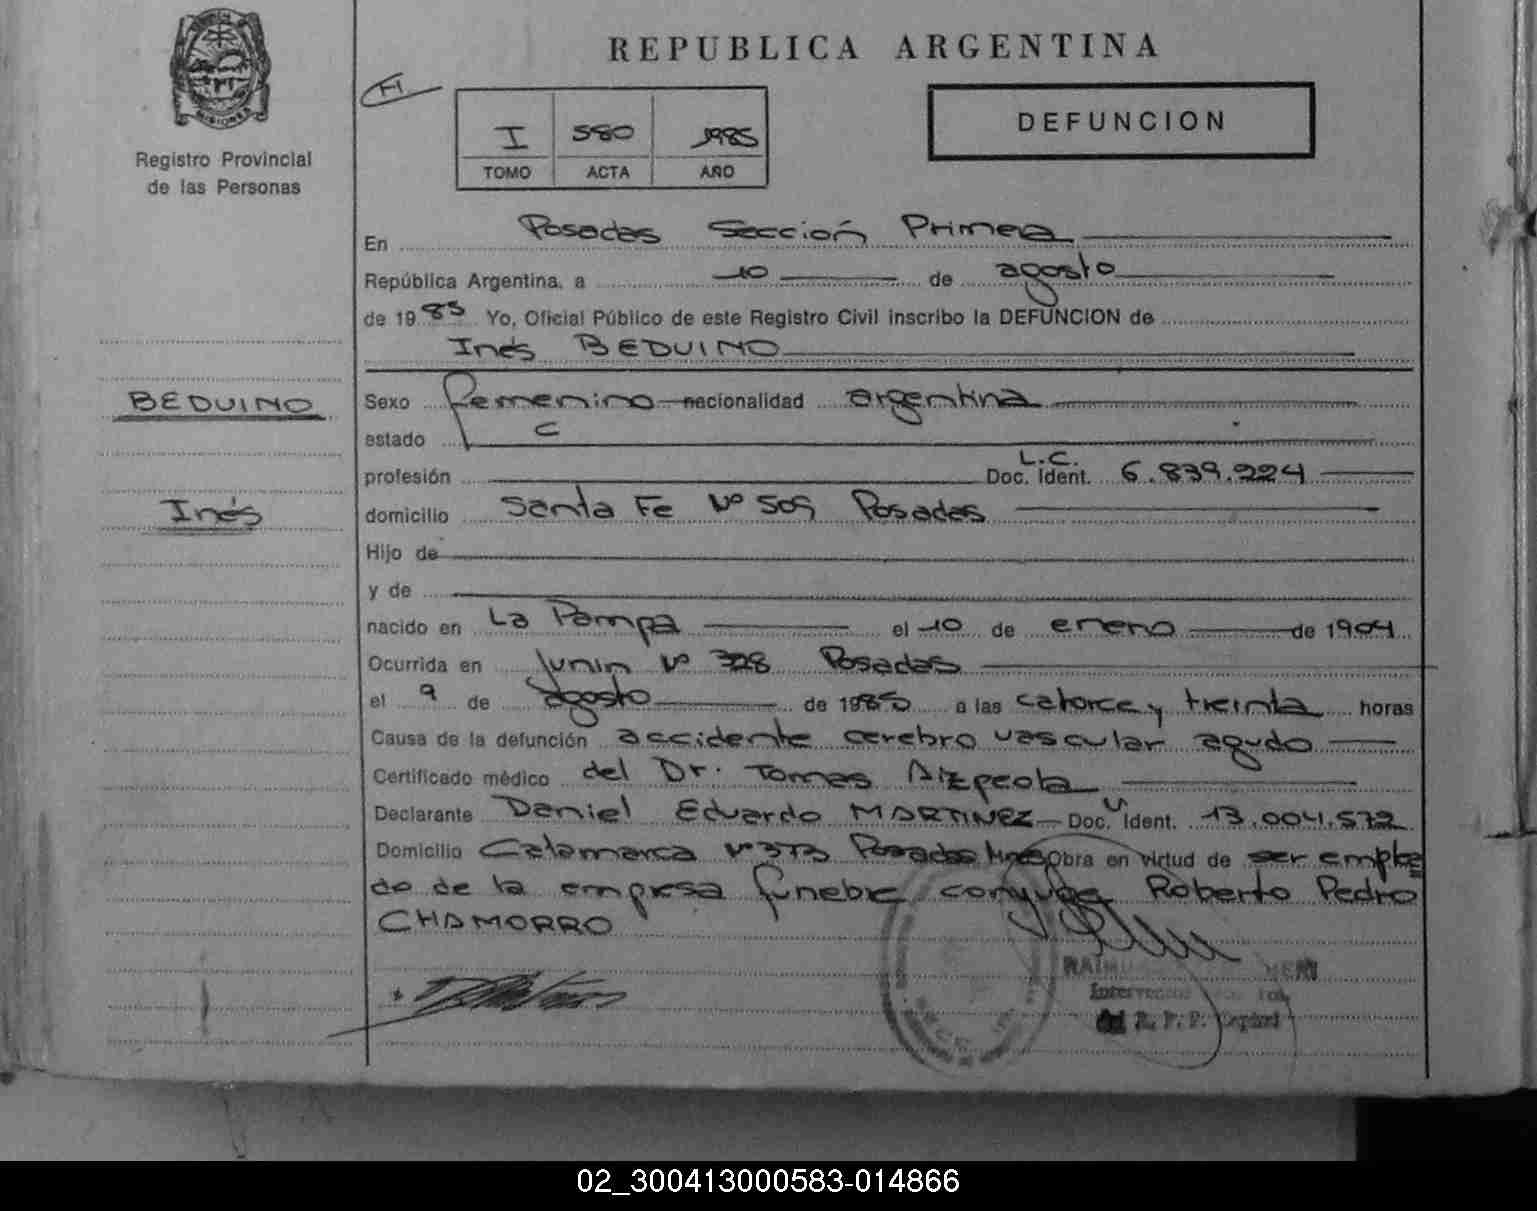 MISIONES
Registro Provincial
de las Personas
BEDUINO
Inés
REPUBLICA ARGENTINA
I 580 1985
TOMO ACTA AÑO
DEFUNCION
En Posadas Sección Primera
República Argentina, a 10 de agosto
de 1985 Yo, Oficial Público de este Registro Civil inscribo la DEFUNCION de
Inés BEDUINO
Sexo femenino nacionalidad argentina
estado c
profesión Doc. Ident. L.C. 6.839.224
domicilio Santa Fe Nº 509 Posadas
Hijo de
y de
nacido en La Pampa el 10 de enero de 1904
Ocurrida en Junin Nº 328 Posadas
el 9 de agosto de 1985 a las catorce y treinta horas
Causa de la defunción accidente cerebro vascular agudo
Certificado médico del Dr. Tomas
Declarante Daniel Eduardo MARTINEZ Doc. Ident. 13.004.572
Domicilio Catamarca Nº 373 Posadas Obra en virtud de ser emplea
do de la empresa funebre conyuge Roberto Pedro
CHAMORRO
R. P. P. Capital
02_300413000583-014866